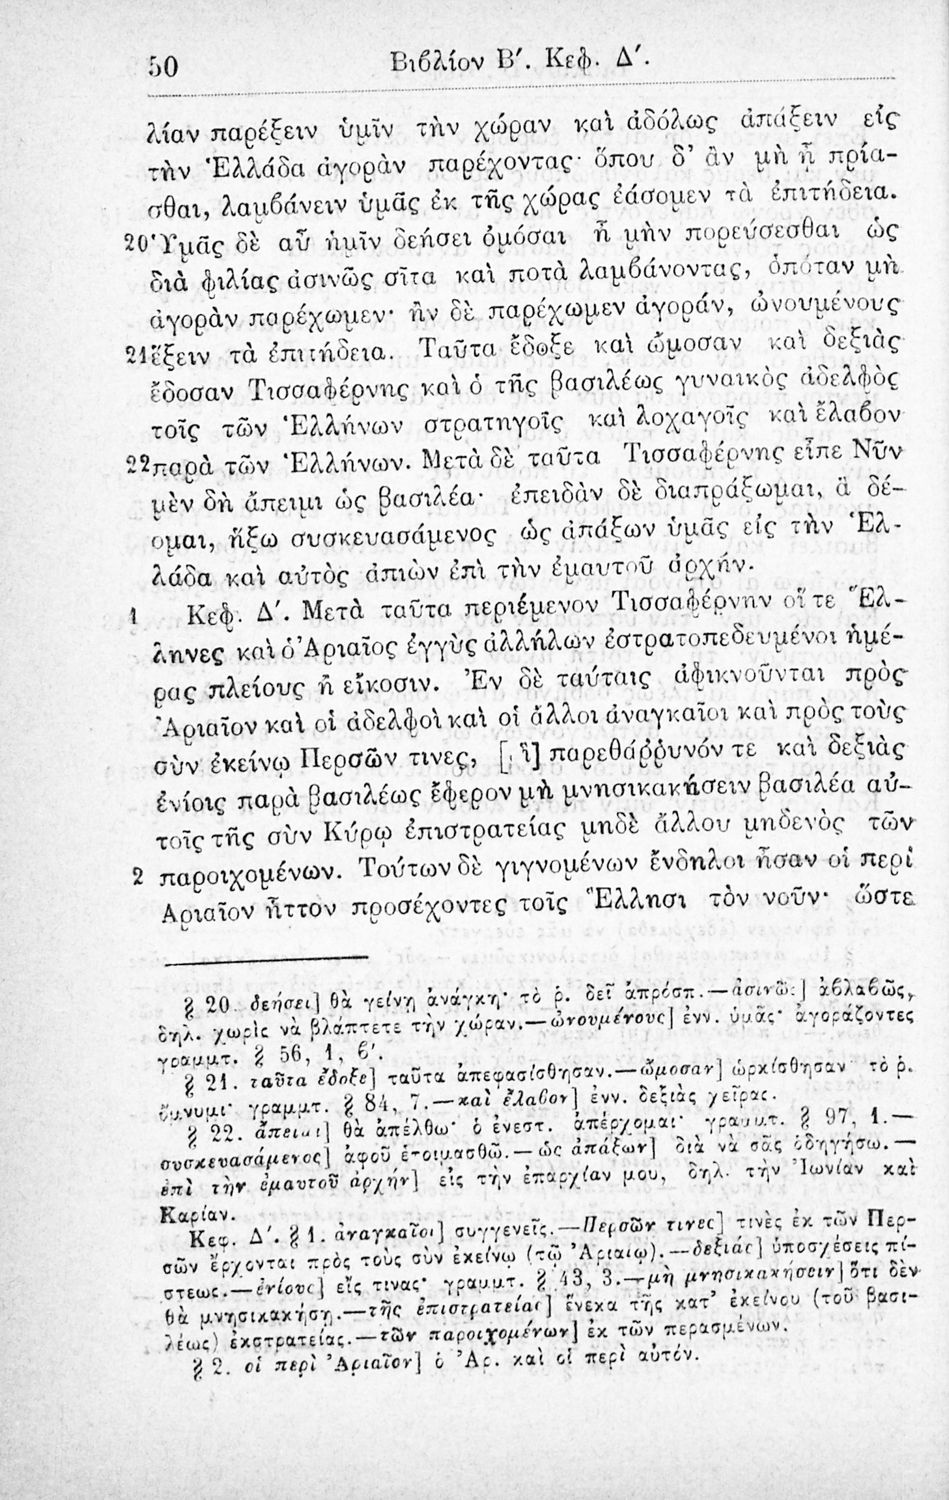 50 Βιβλίον Β′. Κεφ. Δ′.
λίαν παρέξειν ὑμῖν τὴν χώραν καὶ ἀδόλως ἀπάξειν εἰς
τὴν Ἑλλάδα ἀγορὰν παρέχοντας· ὅπου δ’ ἂν μὴ ᾖ πρία-
σθαι, λαμβάνειν ὑμᾶς ἐκ τῆς χώρας ἐάσομεν τὰ ἐπιτήδεια.
20 Ὑμᾶς δὲ αὖ ἡμῖν δεήσει ὀμόσαι ἦ μὴν πορεύσεσθαι ὡς
διὰ φιλίας ἀσινῶς σῖτα καὶ ποτὰ λαμβάνοντας, ὁπόταν μὴ
ἀγορὰν παρέχωμεν· ἢν δὲ παρέχωμεν ἀγοράν, ὠνουμένους
21 ἕξειν τὰ ἐπιτήδεια. Ταῦτα ἔδοξε καὶ ὤμοσαν καὶ δεξιὰς
ἔδοσαν Τισσαφέρνης καὶ ὁ τῆς βασιλέως γυναικὸς ἀδελφὸς
τοῖς τῶν Ἑλλήνων στρατηγοῖς καὶ λοχαγοῖς καὶ ἔλαβον
22 παρὰ τῶν Ἑλλήνων. Μετὰ δὲ ταῦτα Τισσαφέρνης εἶπε Νῦν
μὲν δὴ ἄπειμι ὡς βασιλέα· ἐπειδὰν δὲ διαπράξωμαι, ἃ δέ-
ομαι, ἥξω συσκευασάμενος ὡς ἀπάξων ὑμᾶς εἰς τὴν Ἑλ-
λάδα καὶ αὐτὸς ἀπιὼν ἐπὶ τὴν ἐμαυτοῦ ἀρχήν.
1 Κεφ. Δ′. Μετὰ ταῦτα περιέμενον Τισσαφέρνην οἵ τε Ἕλ-
ληνες καὶ ὁ Ἀριαῖος ἐγγὺς ἀλλήλων ἐστρατοπεδευμένοι ἡμέ-
ρας πλείους ἢ εἴκοσιν. Ἐν δὲ ταύταις ἀφικνοῦνται πρὸς
Ἀριαῖον καὶ οἱ ἀδελφοὶ καὶ οἱ ἄλλοι ἀναγκαῖοι καὶ πρὸς τοὺς
σὺν ἐκείνῳ Περσῶν τινες, παρεθάρρυνόν τε καὶ δεξιὰς
ἐνίοις παρὰ βασιλέως ἔφερον μὴ μνησικακήσειν βασιλέα αὐ-
τοῖς τῆς σὺν Κύρῳ ἐπιστρατείας μηδὲ ἄλλου μηδενὸς τῶν
2 παροιχομένων. Τούτων δὲ γιγνομένων ἔνδηλοι ἦσαν οἱ περὶ
Ἀριαῖον ἧττον προσέχοντες τοῖς Ἕλλησι τὸν νοῦν· ὥστε
§ 20. δεήσει] θὰ γείνῃ ἀνάγκη· τὸ ῥ. δεῖ ἀπρόσπ.—ἀσινῶς] ἀβλαβῶς,
δηλ. χωρὶς νὰ βλάπτετε τὴν χώραν.—ὠνουμένους] ἐνν. ὑμᾶς· ἀγοράζοντες
γραμμτ. § 56, 1, β′.
§ 21. ταῦτα ἔδοξε] ταῦτα ἀπεφασίσθησαν.—ὤμοσαν] ὡρκίσθησαν· τὸ ῥ.
ὄμνυμι· γραμμτ. § 84, 7.—καὶ ἔλαβον] ἐνν. δεξιὰς χεῖρας.
§ 22. ἄπειμι] θὰ ἀπέλθω· ὁ ἐνεστ. ἀπέρχομαι· γραμμτ. § 97, 1.—
συσκευασάμενος] ἀφοῦ ἑτοιμασθῶ.—ὡς ἀπάξων] διὰ νὰ σᾶς ὁδηγήσω.—
ἐπὶ τὴν ἐμαυτοῦ ἀρχήν] εἰς τὴν ἐπαρχίαν μου, δηλ. τὴν Ἰωνίαν καὶ
Καρίαν.
Κεφ. Δ′. § 1. ἀναγκαῖοι] συγγενεῖς.—Περσῶν τινες] τινὲς ἐκ τῶν Περ-
σῶν ἔρχονται πρὸς τοὺς σὺν ἐκείνῳ (τῷ Ἀριαίῳ).—δεξιάς] ὑποσχέσεις πί-
στεως.—ἐνίους] εἴς τινας· γραμμτ. § 43, 3.—μὴ μνησικακήσειν] ὅτι δὲν
θὰ μνησικακήσῃ.—τῆς ἐπιστρατείας] ἕνεκα τῆς κατ’ ἐκείνου (τοῦ βασι-
λέως) ἐκστρατείας.—τῶν παροιχομένων] ἐκ τῶν περασμένων.
§ 2. οἱ περὶ Ἀριαῖον] ὁ Ἀρ. καὶ οἱ περὶ αὐτόν.